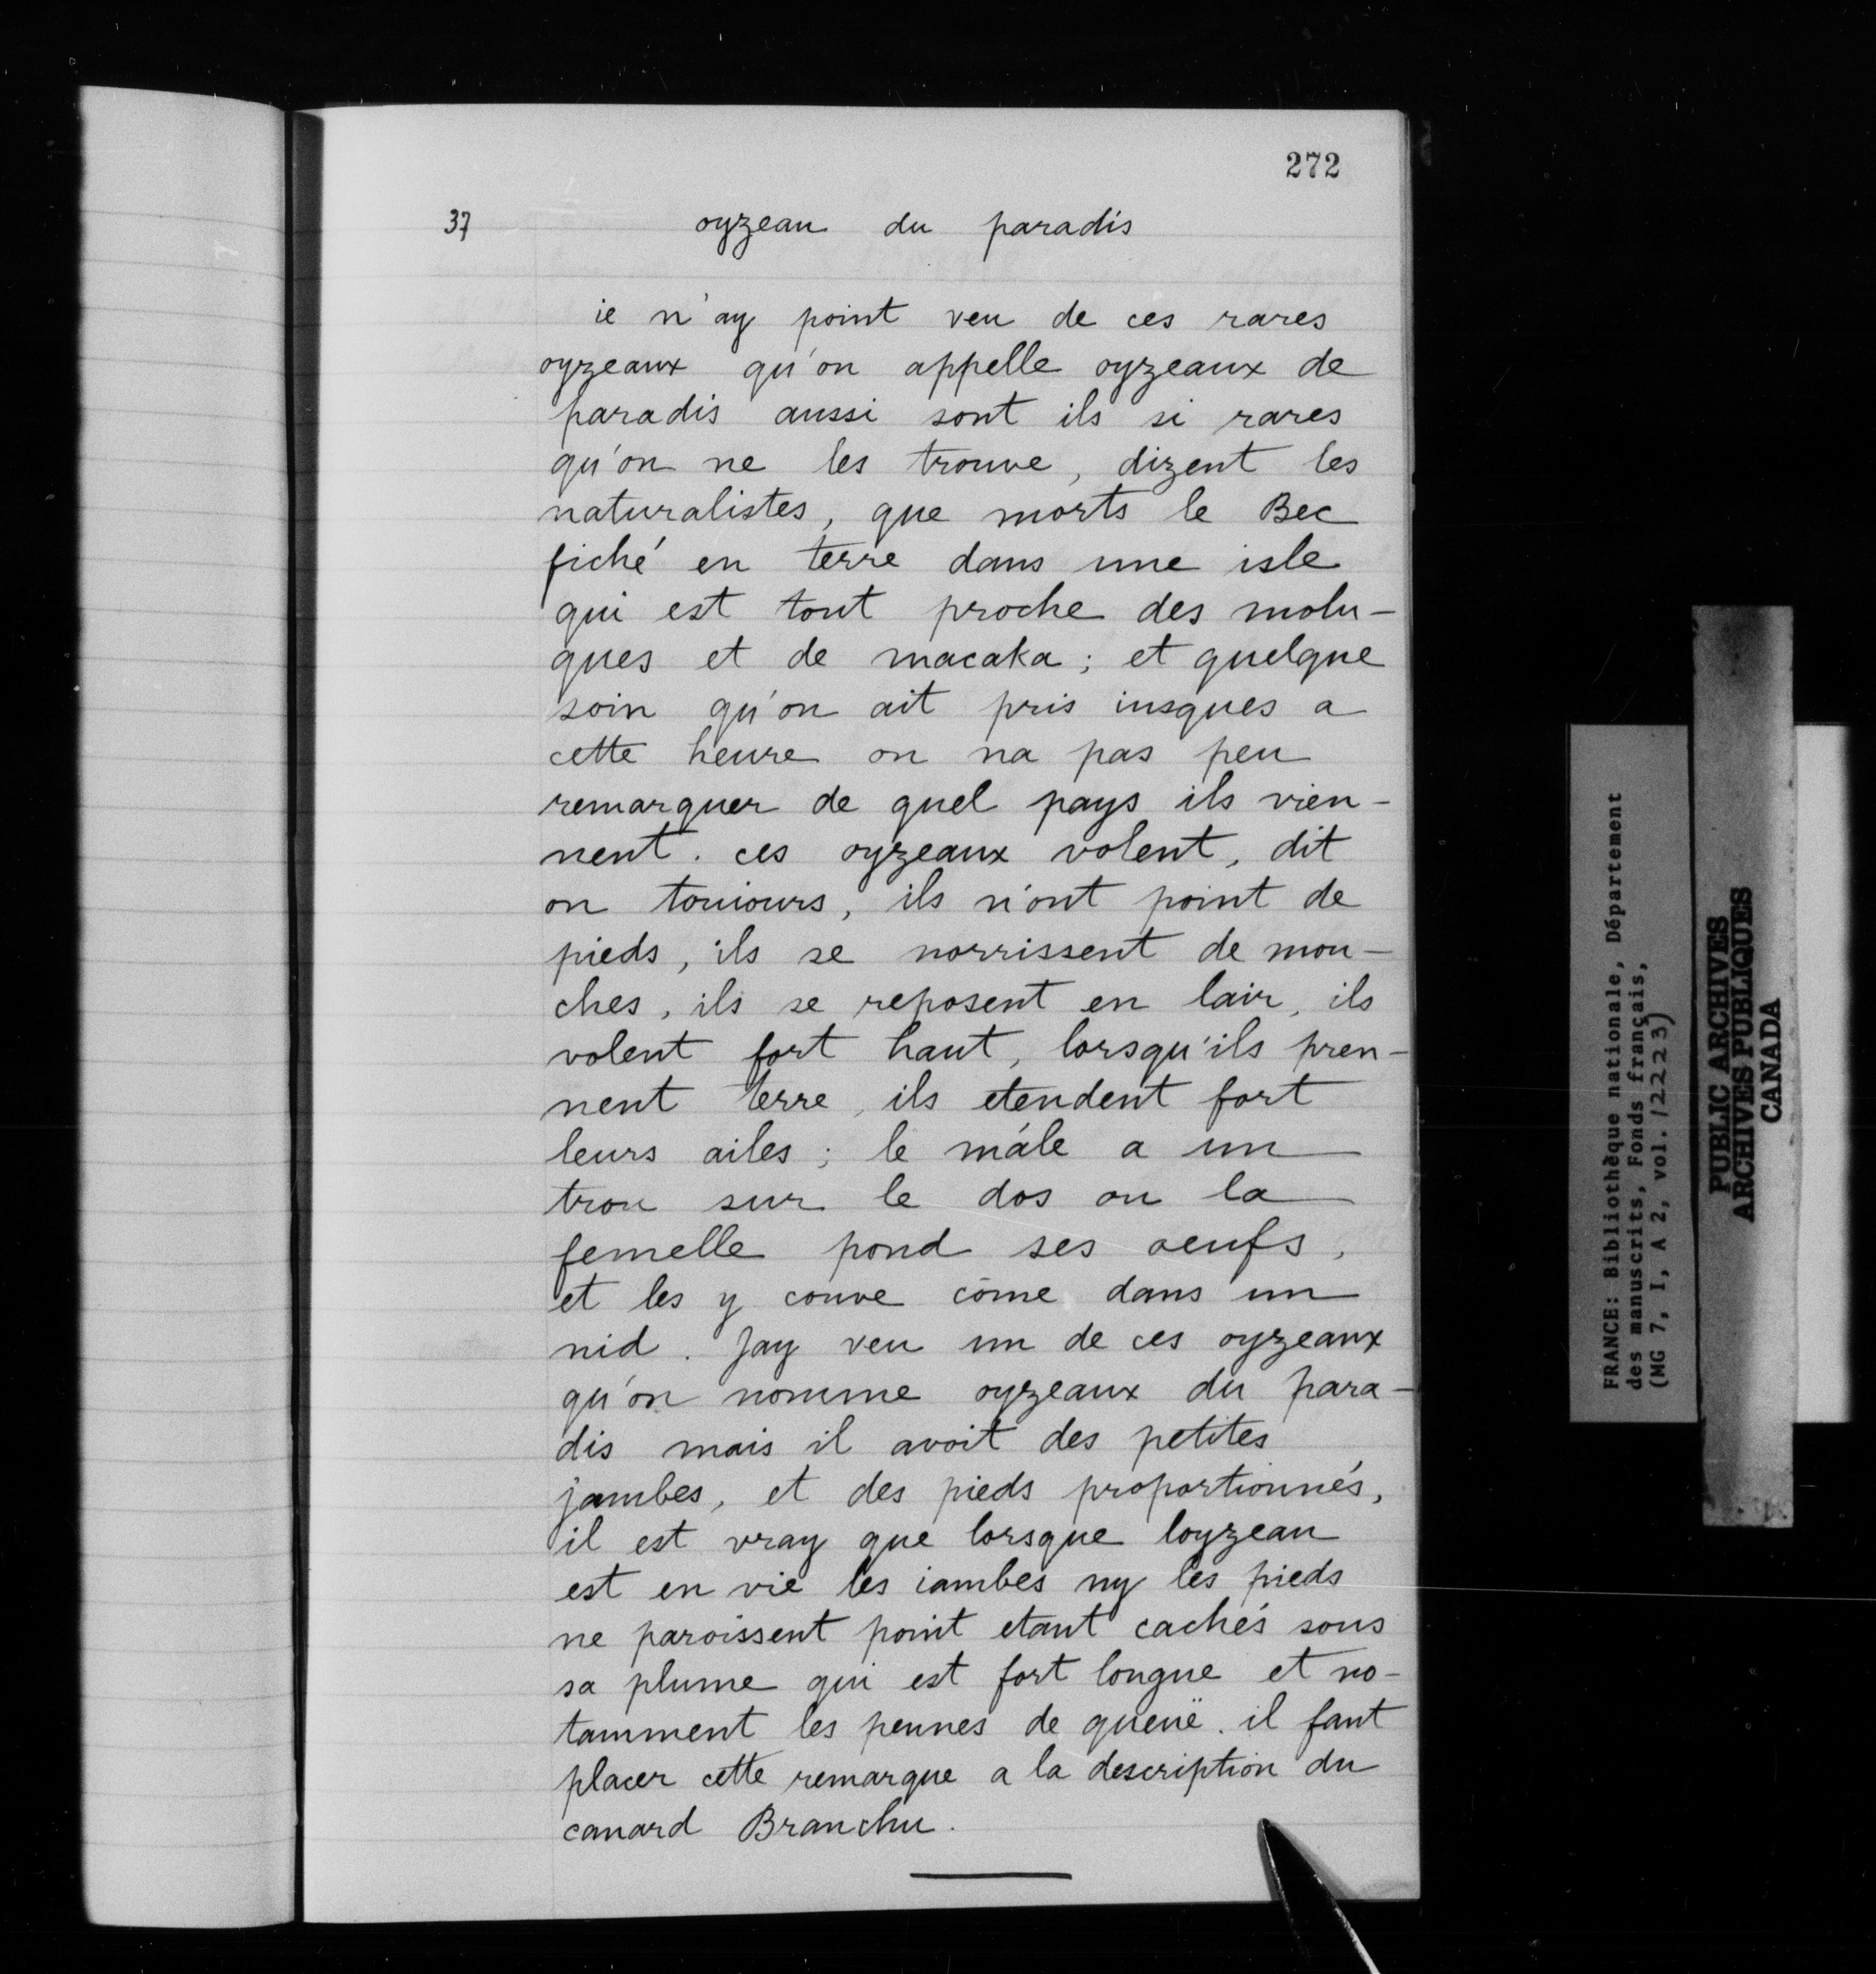 272
37
oyzeau du paradis
ie n'ay point veu de ces rares
oyzeaux qu'on appelle oyzeaux de
paradis aussi sont ils si rares
qu'on ne les trouve, dizent les
naturalistes, que morts le Bec
fiché en terre dans une isle
qui est tout proche des molu-
ques et de macaka ; et quelque
soin qu'on ait pris iusques a
cette heure on na pas peu
remarquer de quel pays ils vien-
nent. ces oyzeaux volent, dit
on touiours, ils n'ont point de
pieds, ils se norrissent de mou-
ches, ils se reposent en lair, ils
volent fort haut, lorsqu'ils pren-
nent terre, ils etendent fort
leurs ailes ; le mâle a un
trou sur le dos ou la
femelle pond ses oeufs,
et les y couve cōme dans un
nid. Jay veu un de ces oyzeaux
qu'on nomme oyzeaux du para-
dis mais il avoit des petites
jambes, et des pieds proportionnés,
il est vray que lorsque loyzeau
est en vie les iambes ny les pieds
ne paroissent point etant cachés sous
sa plume qui est fort longue et no-
tamment les pennes de queuë. il faut
placer cette remarque a la description du
canard Branchu.
FRANCE: Bibliothèque nationale, Département
des manuscrits, Fonds français,
(MG 7, I, A 2, vol. 12223)
PUBLIC ARCHIVES
ARCHIVES PUBLIQUES
CANADA